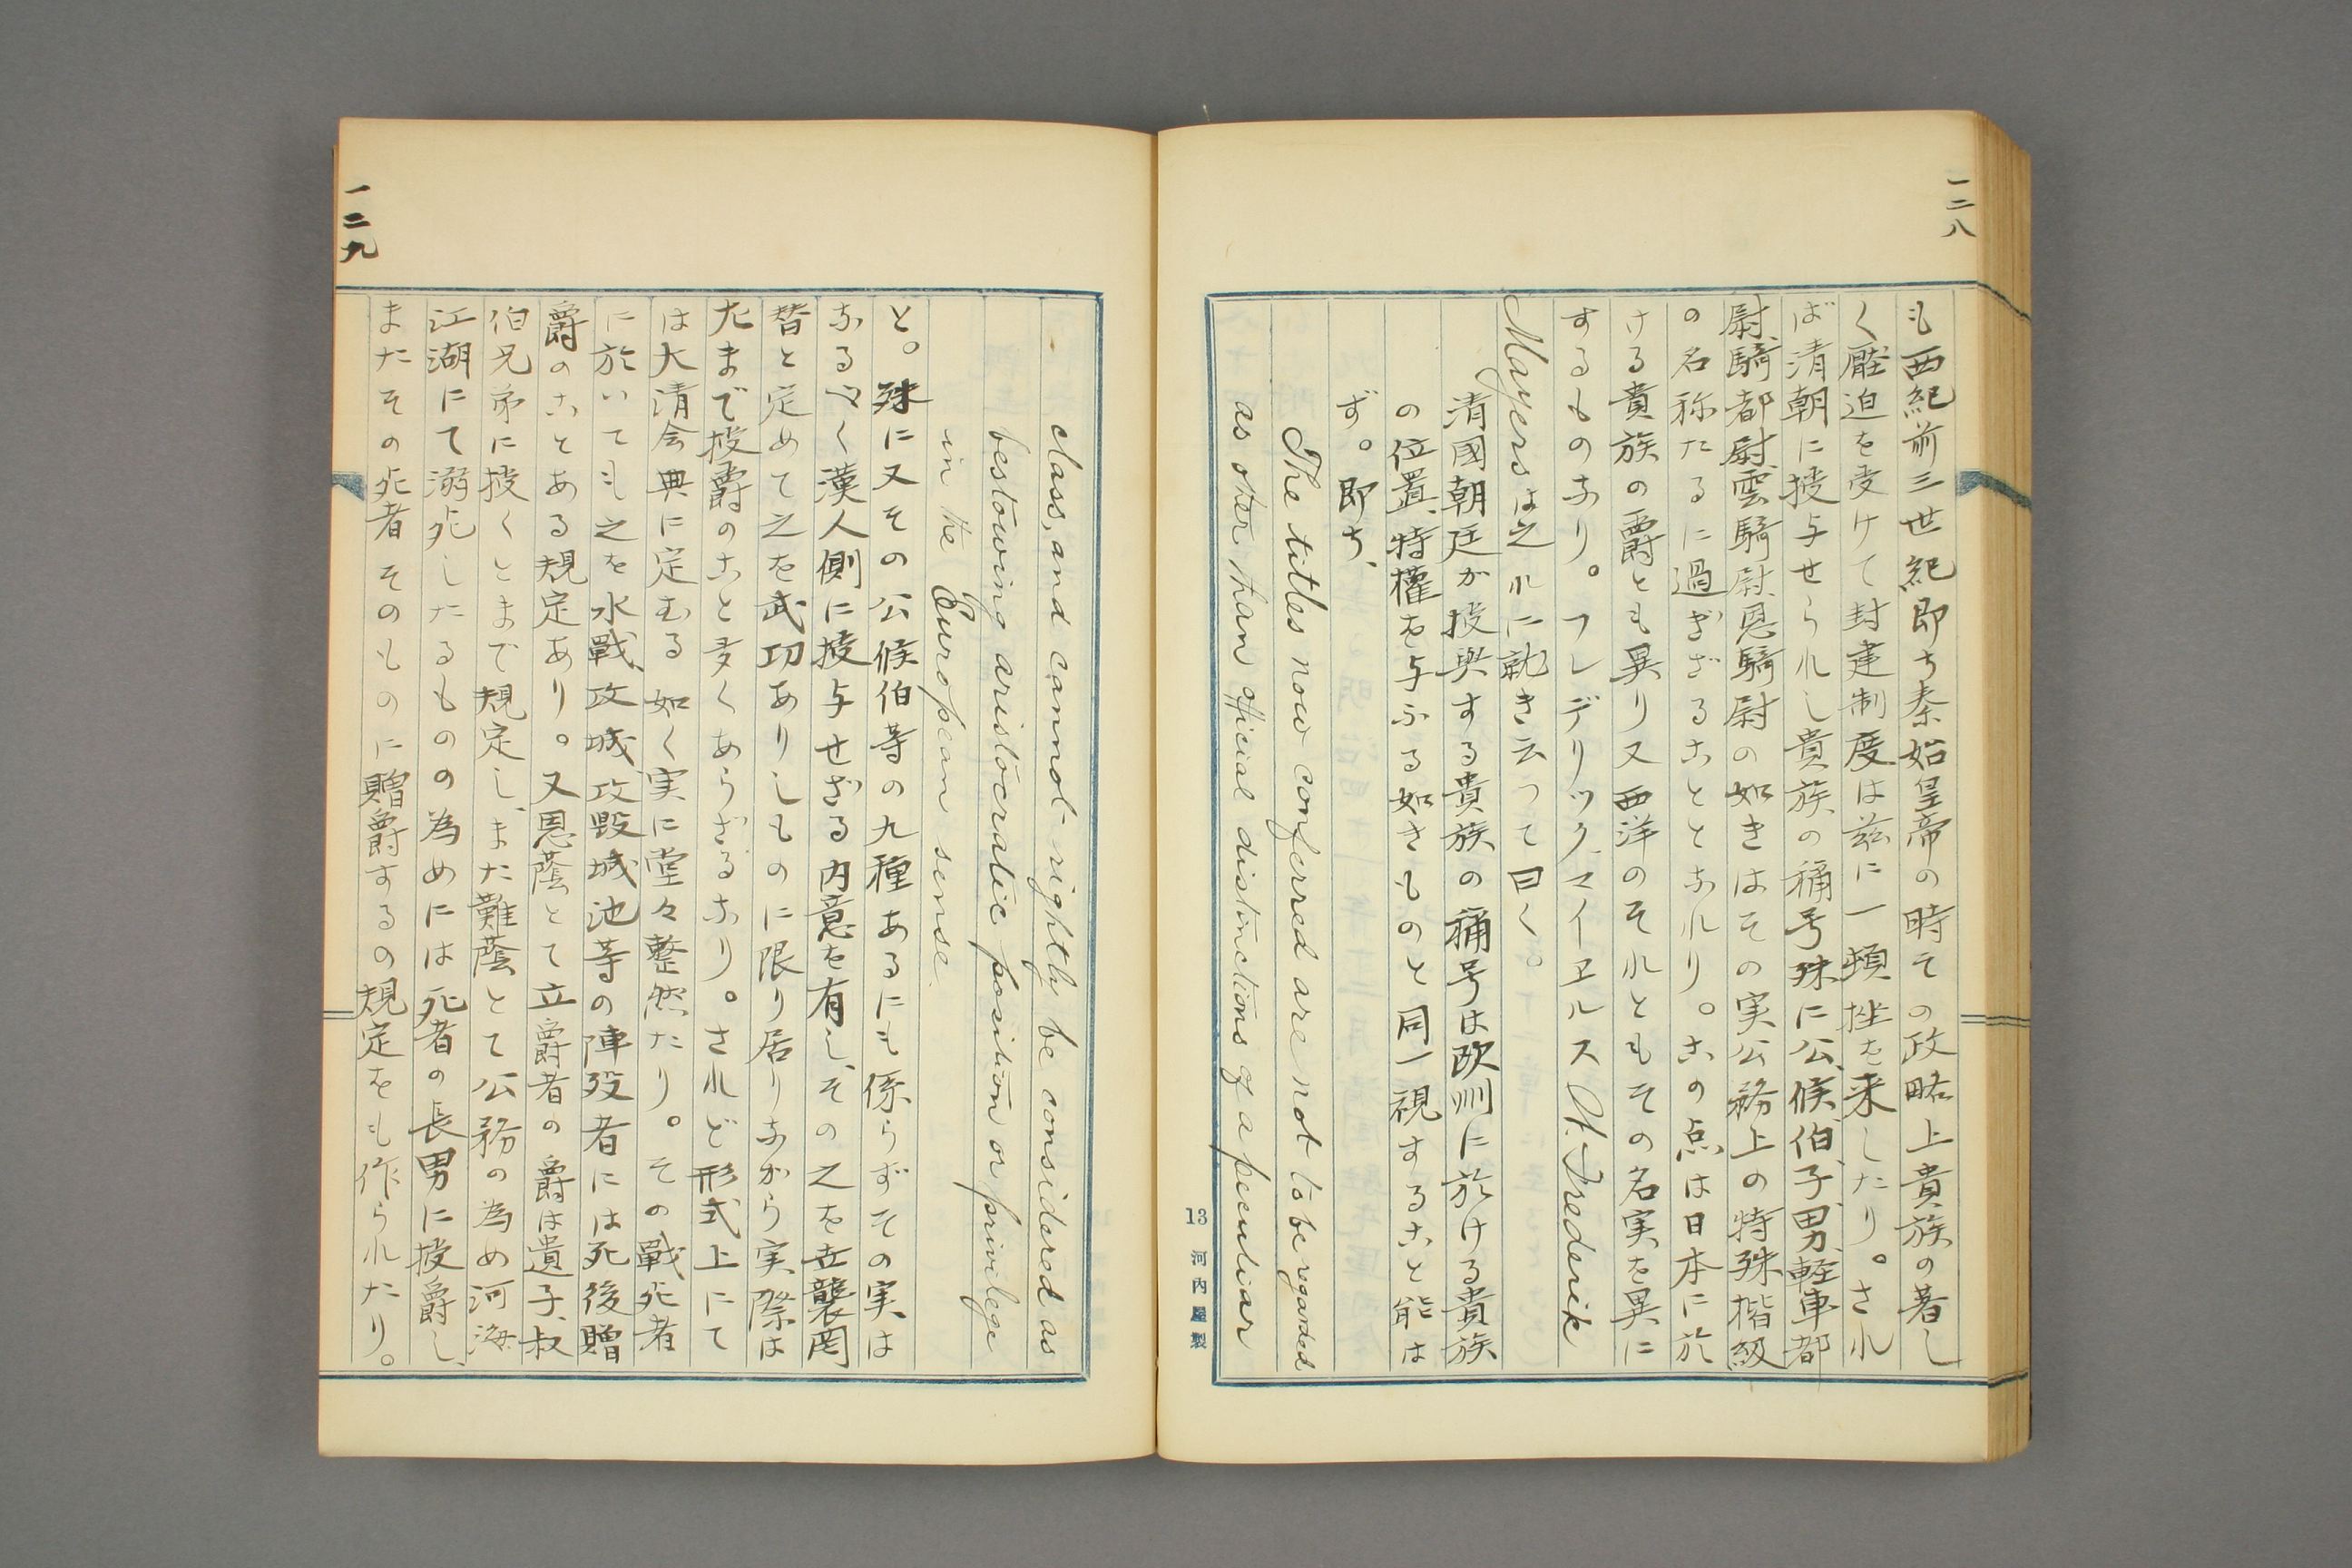 一二八
も西紀前三世紀即ち秦始皇帝の時その政略上貴族の著し
く壓迫を受けて封建制度は茲に一頓挫を来したり。され
ば清朝に授与せられし貴族の稱号殊に公、候、伯、子、男、軽車都
尉、騎都尉、雲騎尉、恩騎尉の如きはその実公務上の特殊楷級
の名称たるに過ぎざることとなれり。この点は日本に於
ける貴族の爵とも異り又西洋のそれともその名実を異に
するものなり。フレデリック、マイヱルス W. Frederik
Mayers は之れに就き云つて曰く。
清國朝廷か授與する貴族の稱号は欧洲に於ける貴族
の位置、特權を与ふる如きものと同一視すること能は
ず。即ち、
The titles now conferred are not to be regarded
as other than official distinctions of a peculiar
13 河内屋製
一二九
class, and cannot rightly be considered as
bestowing aristocratic position or privilege
in the European sense.
と。殊に又その公候伯等の九種あるにも係らずその実は
なるべく漢人側に授与せざる内意を有し、その之を世襲罔
替と定めて之を武功ありしものに限り居りながら実際は
尤まで授爵のこと多くあらざるなり。されど形式上にて
は大清会典に定むる如く実に堂々整然たり。その戰死者
に於いても之を水戰、攻城、攻毀城池等の陣歿者には死後贈
爵のことある規定あり。又恩蔭とて立爵者の爵は遺子、叔
伯兄弟に授くとまで規定し、また難蔭とて公務の為め河海
江湖にて溺死したるものの為めには死者の長男に授爵し、
またその死者そのものに贈爵するの規定をも作られたり。